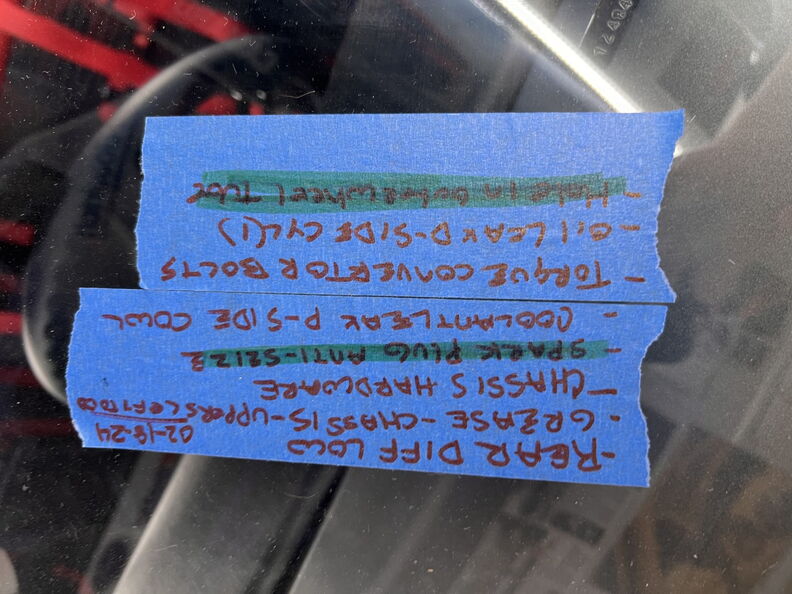 -REAR DIFF LOW
02-18-24
- GREASE -CHASSIS-UPPERS LEFT TO DO
- CHASSIS HARDWARE
- SPARK PLUG ANTI-SEIZE
- COOLANT LEAK P-SIDE COWL
- TORQUE CONVERTOR BOLTS
- OIL LEAK D-SIDE CYL(1)
- Hole in wheel Tube